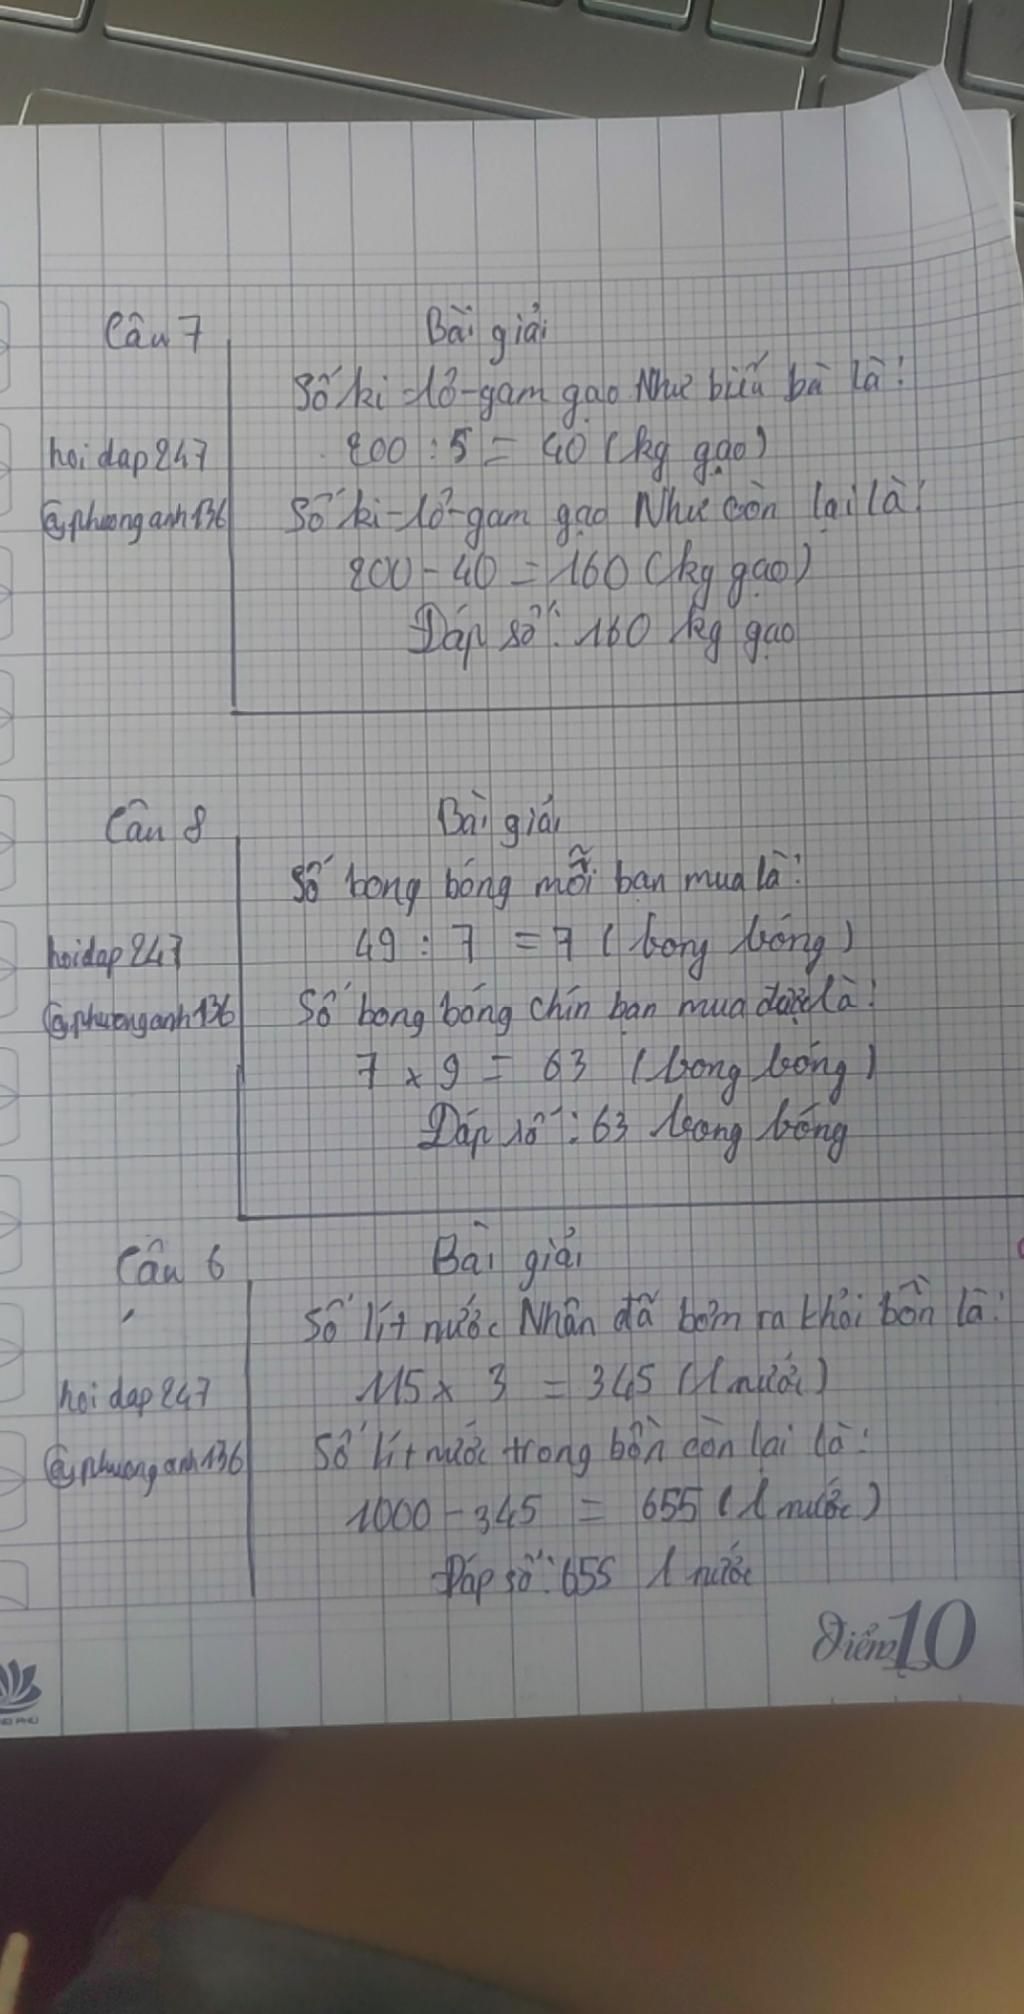 Câu 7
Bài giải
Số ki-lô-gam gạo Như biếu bà là:
200 : 5 = 40 (kg gạo)
hoidap247
@phuonganh136
Số ki-lô-gam gạo Như còn lại là:
200 - 40 = 160 (kg gạo)
Đáp số: 160 kg gạo
Câu 8
Bài giải
Số bong bóng mỗi bạn mua là:
49 : 7 = 7 (bong bóng)
hoidap247
@phuonganh136
Số bong bóng chín bạn mua được là:
7 x 9 = 63 (bong bóng)
Đáp số: 63 bong bóng
Câu 6
Bài giải
Số lít nước Nhân đã bơm ra khỏi bồn là:
115 x 3 = 345 (l nước)
hoidap247
@phuonganh136
Số lít nước trong bồn còn lại là:
1000 - 345 = 655 (l nước)
Đáp số: 655 l nước
Điểm 10